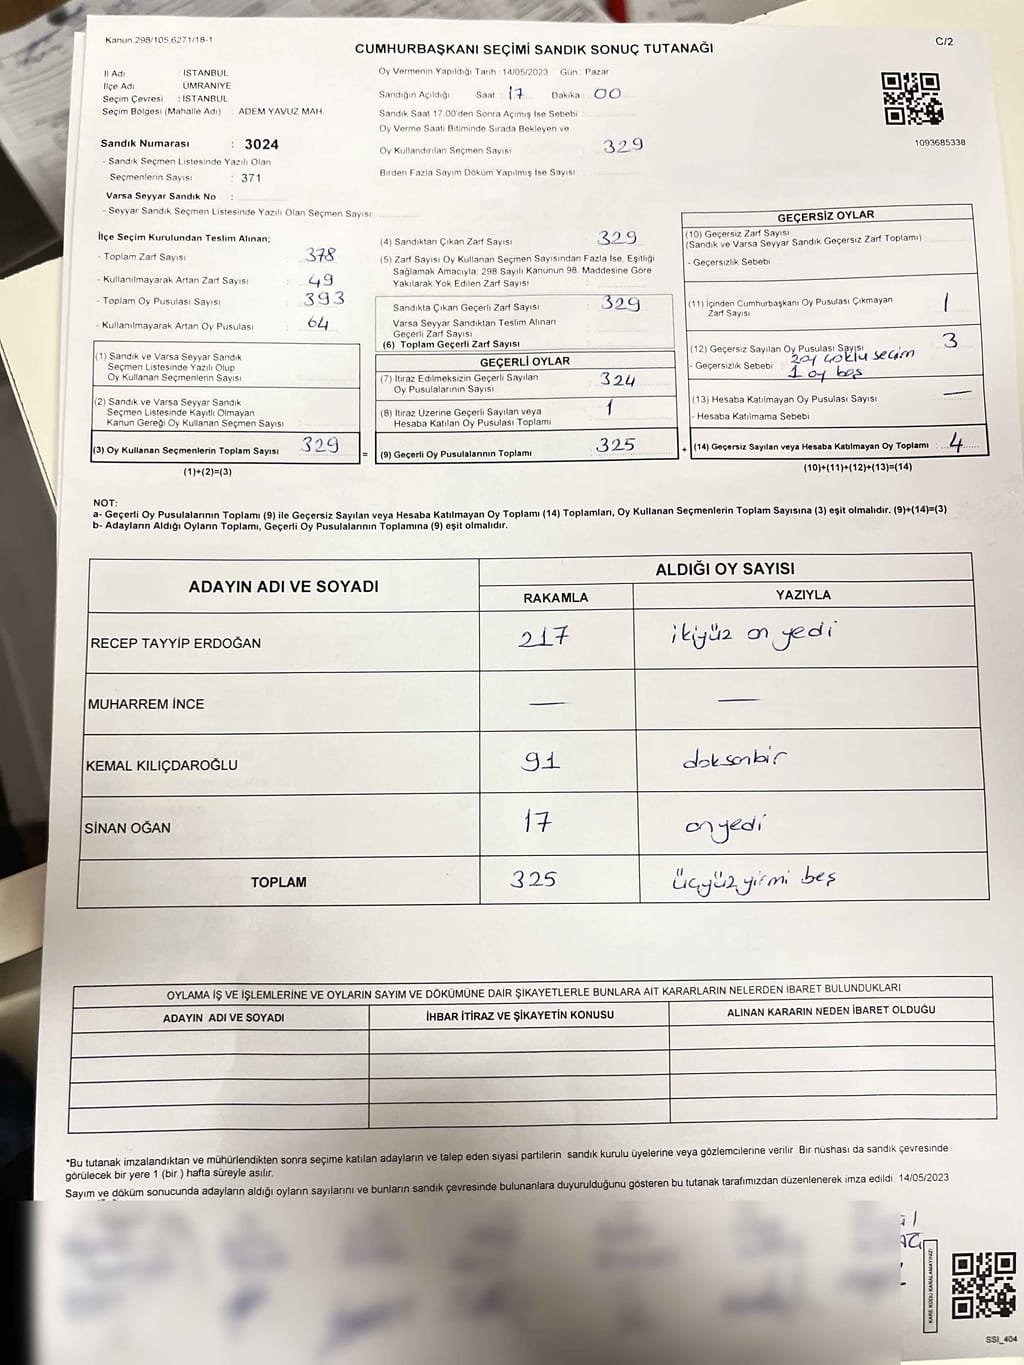 Kanun,298/105,6271/18-1
CUMHURBAŞKANI SEÇİMİ SANDIK SONUÇ TUTANAĞI
C/2
İl Adı : İSTANBUL
İlçe Adı : ÜMRANİYE
Seçim Çevresi : İSTANBUL
Seçim Bölgesi (Mahalle Adı) : ADEM YAVUZ MAH.
Sandık Numarası : 3024
- Sandık Seçmen Listesinde Yazılı Olan
Seçmenlerin Sayısı : 371
Varsa Seyyar Sandık No :
- Seyyar Sandık Seçmen Listesinde Yazılı Olan Seçmen Sayısı:
Oy Vermenin Yapıldığı Tarih :14/05/2023 Gün : Pazar
Sandığın Açıldığı Saat : 17 Dakika : 00
Sandık Saat 17.00'den Sonra Açımış İse Sebebi :
Oy Verme Saati Bitiminde Sırada Bekleyen ve
Oy Kullandırılan Seçmen Sayısı : 329
Birden Fazla Sayım Döküm Yapılmış İse Sayısı :
1093685338
İlçe Seçim Kurulundan Teslim Alınan;
- Toplam Zarf Sayısı : 378
- Kullanılmayarak Artan Zarf Sayısı : 49
- Toplam Oy Pusulası Sayısı : 393
- Kullanılmayarak Artan Oy Pusulası : 64
(1) Sandık ve Varsa Seyyar Sandık
Seçmen Listesinde Yazılı Olup
Oy Kullanan Seçmenlerin Sayısı :
(2) Sandık ve Varsa Seyyar Sandık
Seçmen Listesinde Kayıtlı Olmayan
Kanun Gereği Oy Kullanan Seçmen Sayısı :
(3) Oy Kullanan Seçmenlerin Toplam Sayısı : 329
(1)+(2)=(3)
=
(4) Sandıktan Çıkan Zarf Sayısı : 329
(5) Zarf Sayısı Oy Kullanan Seçmen Sayısından Fazla İse, Eşitliği
Sağlamak Amacıyla, 298 Sayılı Kanunun 98. Maddesine Göre
Yakılarak Yok Edilen Zarf Sayısı :
Sandıkta Çıkan Geçerli Zarf Sayısı : 329
Varsa Seyyar Sandıktan Teslim Alınan
Geçerli Zarf Sayısı :
(6) Toplam Geçerli Zarf Sayısı
GEÇERLİ OYLAR
(7) İtiraz Edilmeksizin Geçerli Sayılan
Oy Pusulalarının Sayısı : 324
(8) İtiraz Üzerine Geçerli Sayılan veya
Hesaba Katılan Oy Pusulası Toplamı : 1
(9) Geçerli Oy Pusulalarının Toplamı : 325
+
GEÇERSİZ OYLAR
(10) Geçersiz Zarf Sayısı
(Sandık ve Varsa Seyyar Sandık Geçersiz Zarf Toplamı) :
- Geçersizlik Sebebi :
(11) İçinden Cumhurbaşkanı Oy Pusulası Çıkmayan
Zarf Sayısı : 1
(12) Geçersiz Sayılan Oy Pusulası Sayısı : 3
- Geçersizlik Sebebi : 2 oy çoklu seçim
1 oy boş
(13) Hesaba Katılmayan Oy Pusulası Sayısı : —
- Hesaba Katılmama Sebebi :
(14) Geçersiz Sayılan veya Hesaba Katılmayan Oy Toplamı : 4
(10)+(11)+(12)+(13)=(14)
NOT:
a- Geçerli Oy Pusulalarının Toplamı (9) ile Geçersiz Sayılan veya Hesaba Katılmayan Oy Toplamı (14) Toplamları, Oy Kullanan Seçmenlerin Toplam Sayısına (3) eşit olmalıdır. (9)+(14)=(3)
b- Adayların Aldığı Oyların Toplamı, Geçerli Oy Pusulalarının Toplamına (9) eşit olmalıdır.
ADAYIN ADI VE SOYADI
ALDIĞI OY SAYISI
RAKAMLA YAZIYLA
RECEP TAYYİP ERDOĞAN 217 ikiyüz on yedi
MUHARREM İNCE — —
KEMAL KILIÇDAROĞLU 91 doksanbir
SİNAN OĞAN 17 onyedi
TOPLAM 325 üçyüz yirmi beş
OYLAMA İŞ VE İŞLEMLERİNE VE OYLARIN SAYIM VE DÖKÜMÜNE DAİR ŞİKAYETLERLE BUNLARA AİT KARARLARIN NELERDEN İBARET BULUNDUKLARI
ADAYIN ADI VE SOYADI İHBAR İTİRAZ VE ŞİKAYETİN KONUSU ALINAN KARARIN NEDEN İBARET OLDUĞU
*Bu tutanak imzalandıktan ve mühürlendikten sonra seçime katılan adayların ve talep eden siyasi partilerin sandık kurulu üyelerine veya gözlemcilerine verilir. Bir nüshası da sandık çevresinde
görülecek bir yere 1 (bir ) hafta süreyle asılır.
Sayım ve döküm sonucunda adayların aldığı oyların sayılarını ve bunların sandık çevresinde bulunanlara duyurulduğunu gösteren bu tutanak tarafımızdan düzenlenerek imza edildi. 14/05/2023
KARE KODU KARALAMAYINIZ!
SSI_404